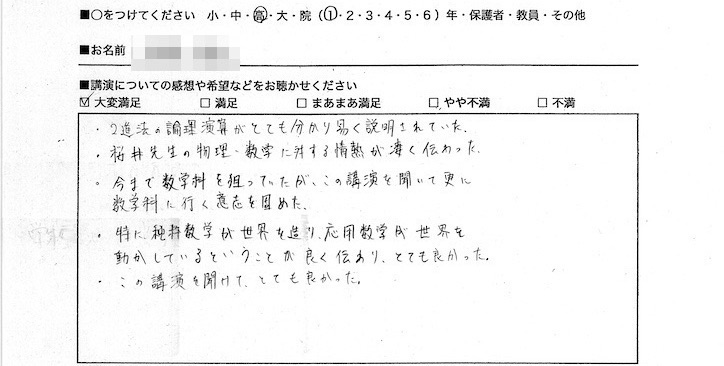 ■○をつけてください 小・中・高・大・院(1・2・3・4・5・6)年・保護者・教員・その他
■お名前
■講演についての感想や希望などをお聴かせください
☑ 大変満足 □ 満足 □ まあまあ満足 □ やや不満 □ 不満
・2進法の論理演算がとても分かり易く説明されていた。
・桜井先生の物理・数学に対する情熱が凄く伝わった。
・今まで数学科を狙っていたが、この講演を聞いて更に
数学科に行く意志を固めた。
・特に、純粋数学が世界を造り、応用数学が世界を
動かしているということが良く伝わり、とても良かった。
・この講演を聞けて、とても良かった。